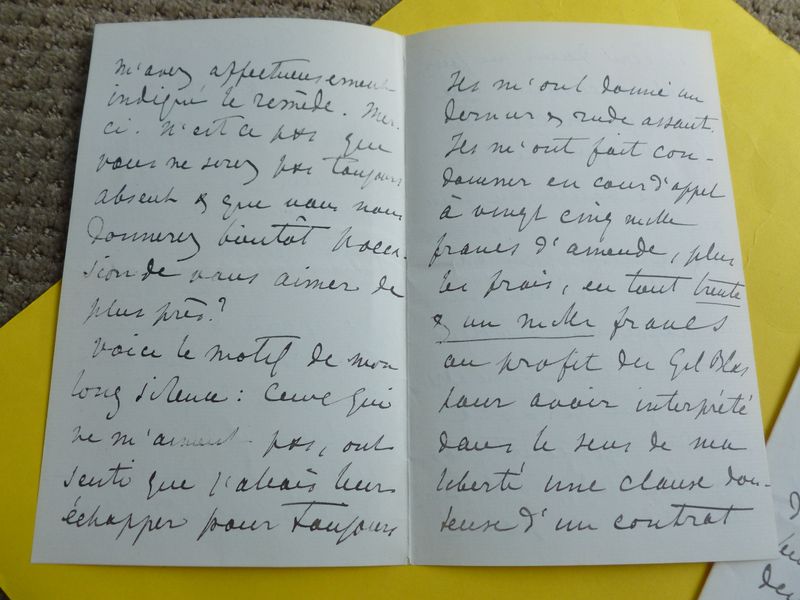 m'avez affectueusement
indiqué le remède. Mer-
ci. N'est ce pas que
vous ne serez pas toujours
absent & que vous nous
donnerez bientôt l'occa-
sion de vous aimer de
plus près ?
Voici le motif de mon
long silence : Ceux qui
ne m'aiment pas, ont
senti que j'allais leur
échapper pour toujours
Ils m'ont donné un
dernier & rude assaut.
Ils m'ont fait con-
damner en cour d'appel
à vingt cinq mille
francs d'amende, plus
les frais, en tout trente
& un mille francs
au profit du Gil Blas
pour avoir interprété
dans le sens de ma
liberté une clause dou-
teuse d'un contrat